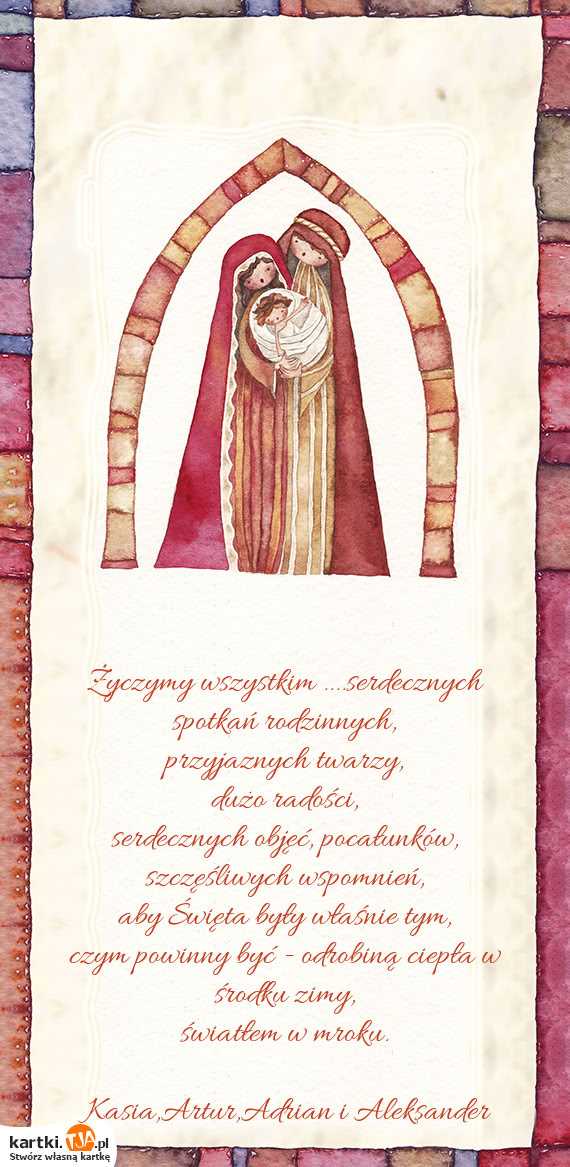 Życzymy wszystkim ....serdecznych
spotkań rodzinnych,
przyjaznych twarzy,
dużo radości,
serdecznych objęć, pocałunków,
szczęśliwych wspomnień,
aby Święta były właśnie tym,
czym powinny być - odrobiną ciepła w
środku zimy,
światłem w mroku.
Kasia,Artur,Adrian i Aleksander
kartki.TJA.pl
Stwórz własną kartkę